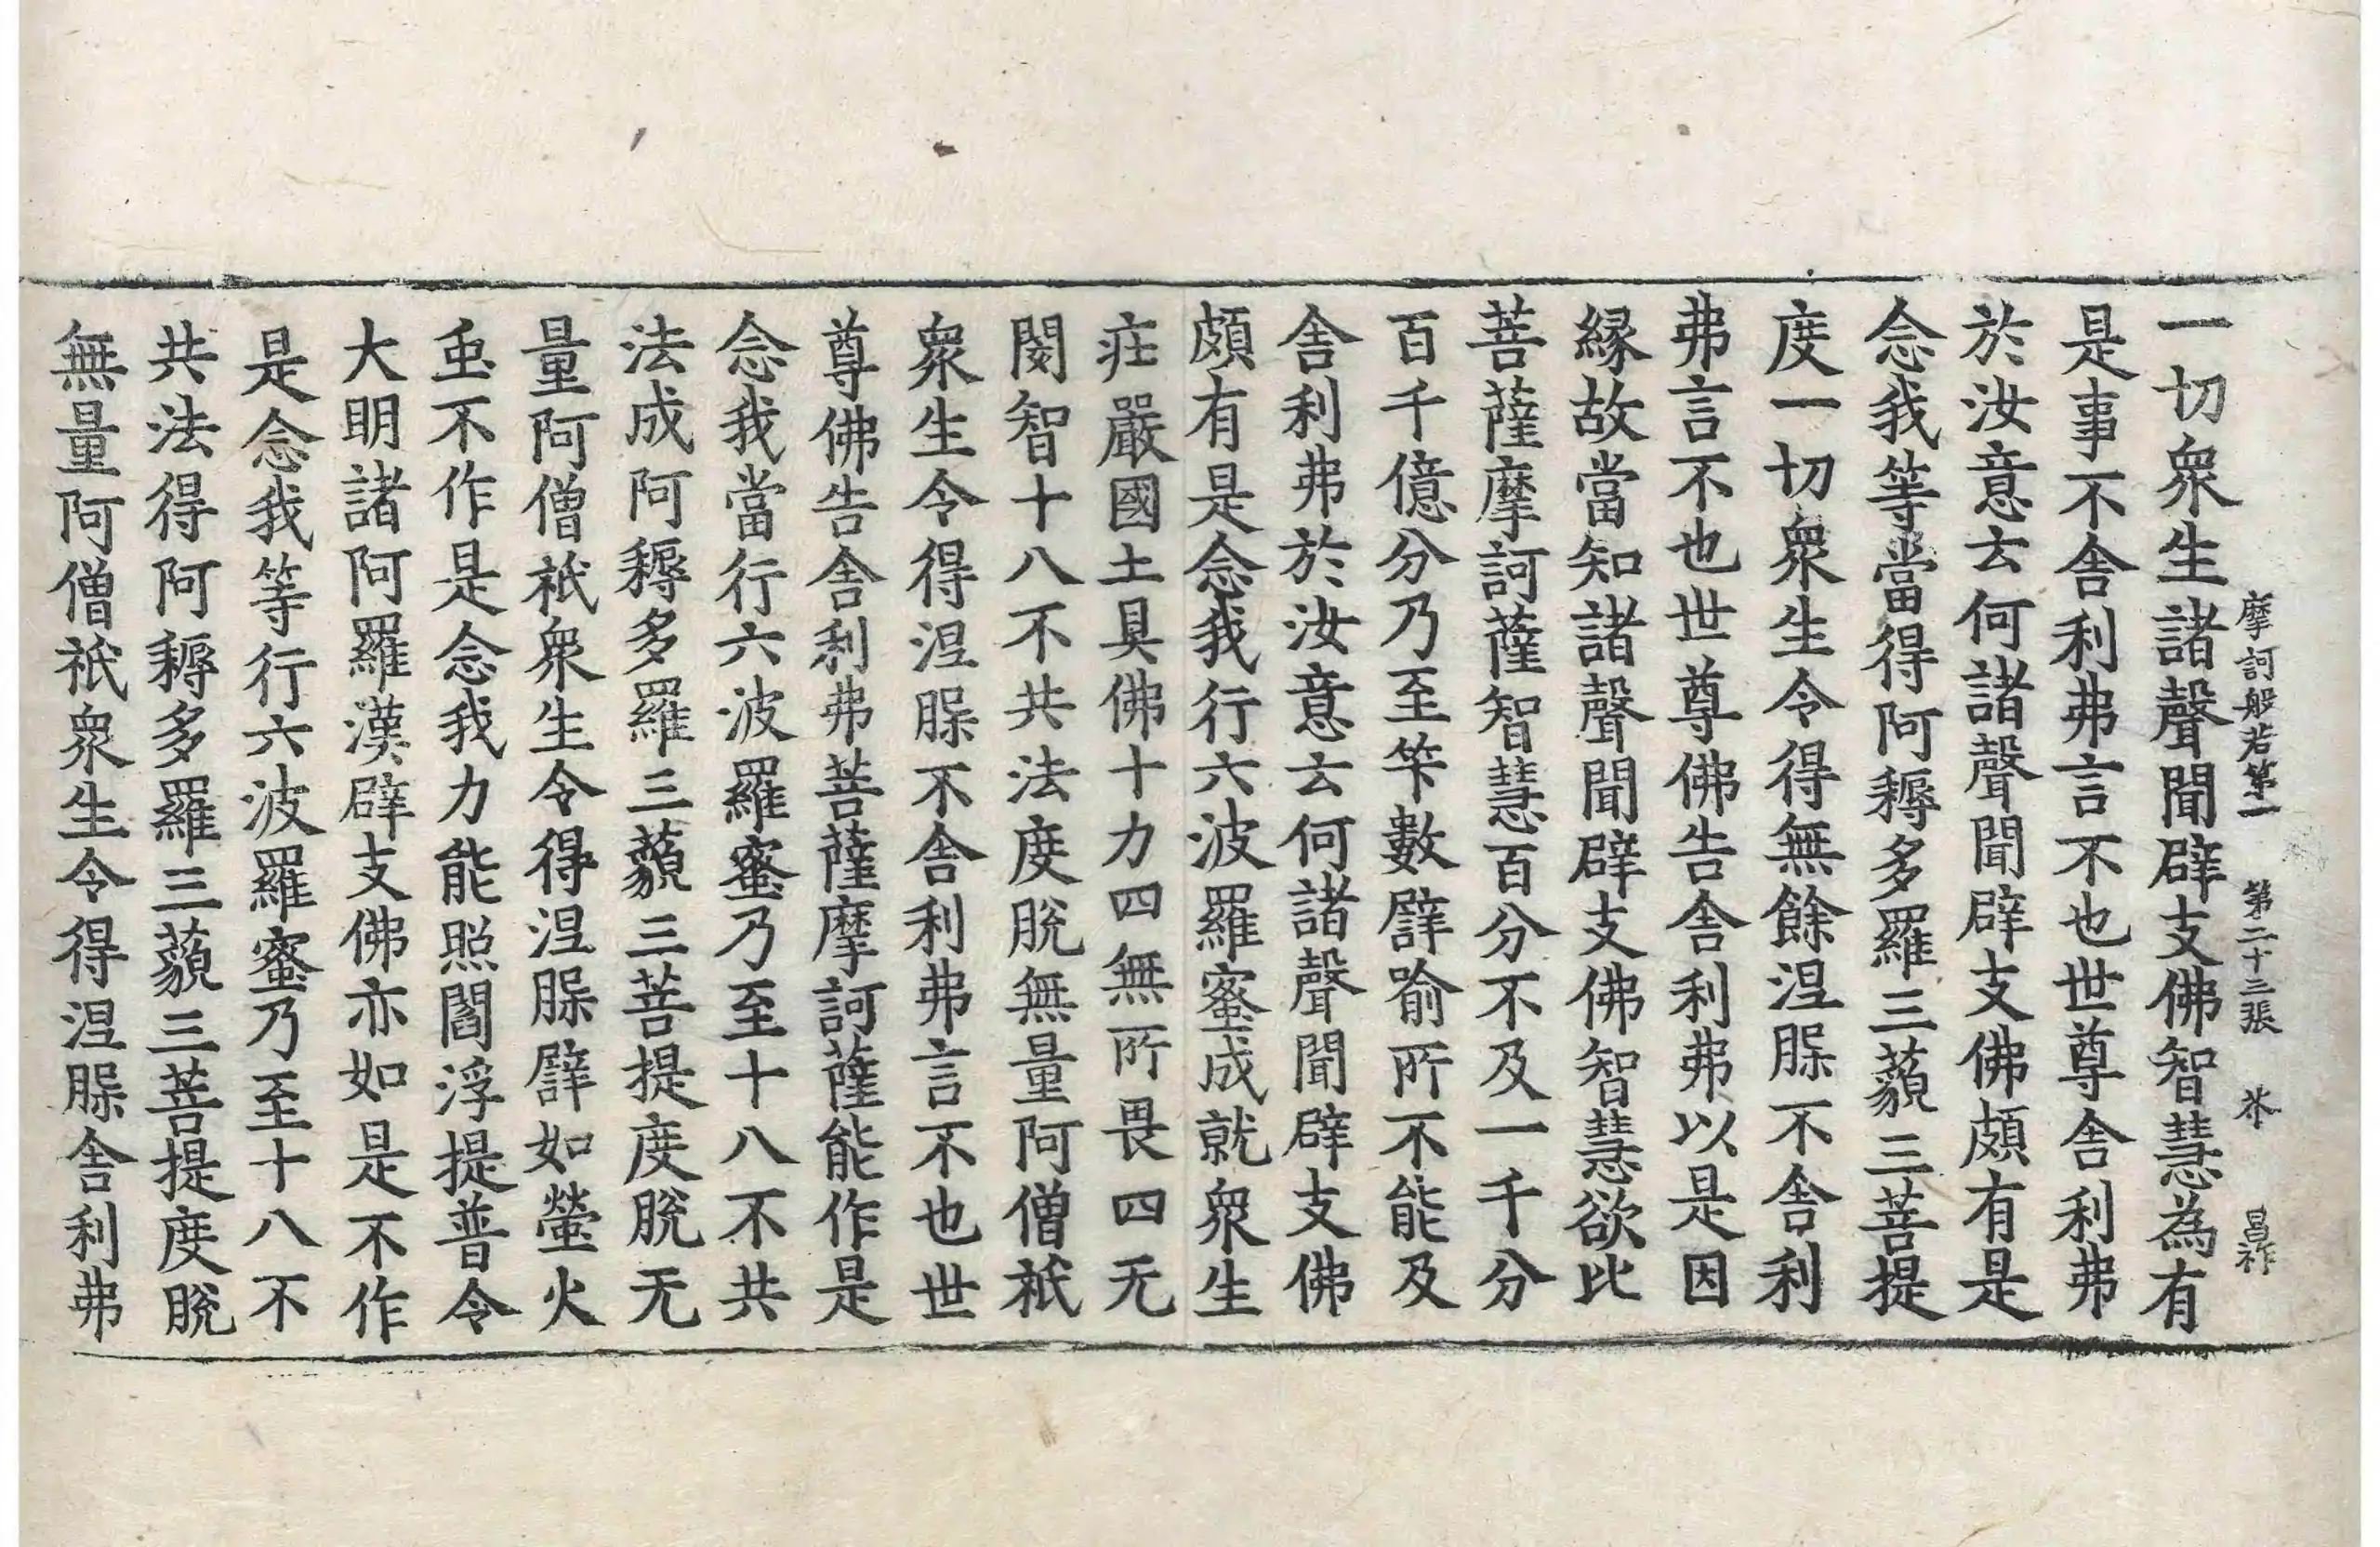 摩訶般若第一　第二十三張　芥　昌祚
一切衆生諸聲聞辟支佛智慧為有
是事不舍利弗言不也世尊舍利弗
於汝意云何諸聲聞辟支佛頗有是
念我等當得阿耨多羅三藐三菩提
度一切衆生令得無餘涅槃不舍利
弗言不也世尊佛告舍利弗以是因
緣故當知諸聲聞辟支佛智慧欲比
菩薩摩訶薩智慧百分不及一千分
百千億分乃至竿數譬喻所不能及
舍利弗於汝意云何諸聲聞辟支佛
頗有是念我行六波羅蜜成就衆生
庄嚴國土具佛十力四無所畏四无
閡智十八不共法度脫無量阿僧祇
衆生令得涅槃不舍利弗言不也世
尊佛告舍利弗菩薩摩訶薩能作是
念我當行六波羅蜜乃至十八不共
法成阿耨多羅三藐三菩提度脫无
量阿僧祇衆生令得涅槃譬如螢火
虫不作是念我力能照閻浮提普令
大明諸阿羅漢辟支佛亦如是不作
是念我等行六波羅蜜乃至十八不
共法得阿耨多羅三藐三菩提度脫
無量阿僧祇衆生令得涅槃舍利弗